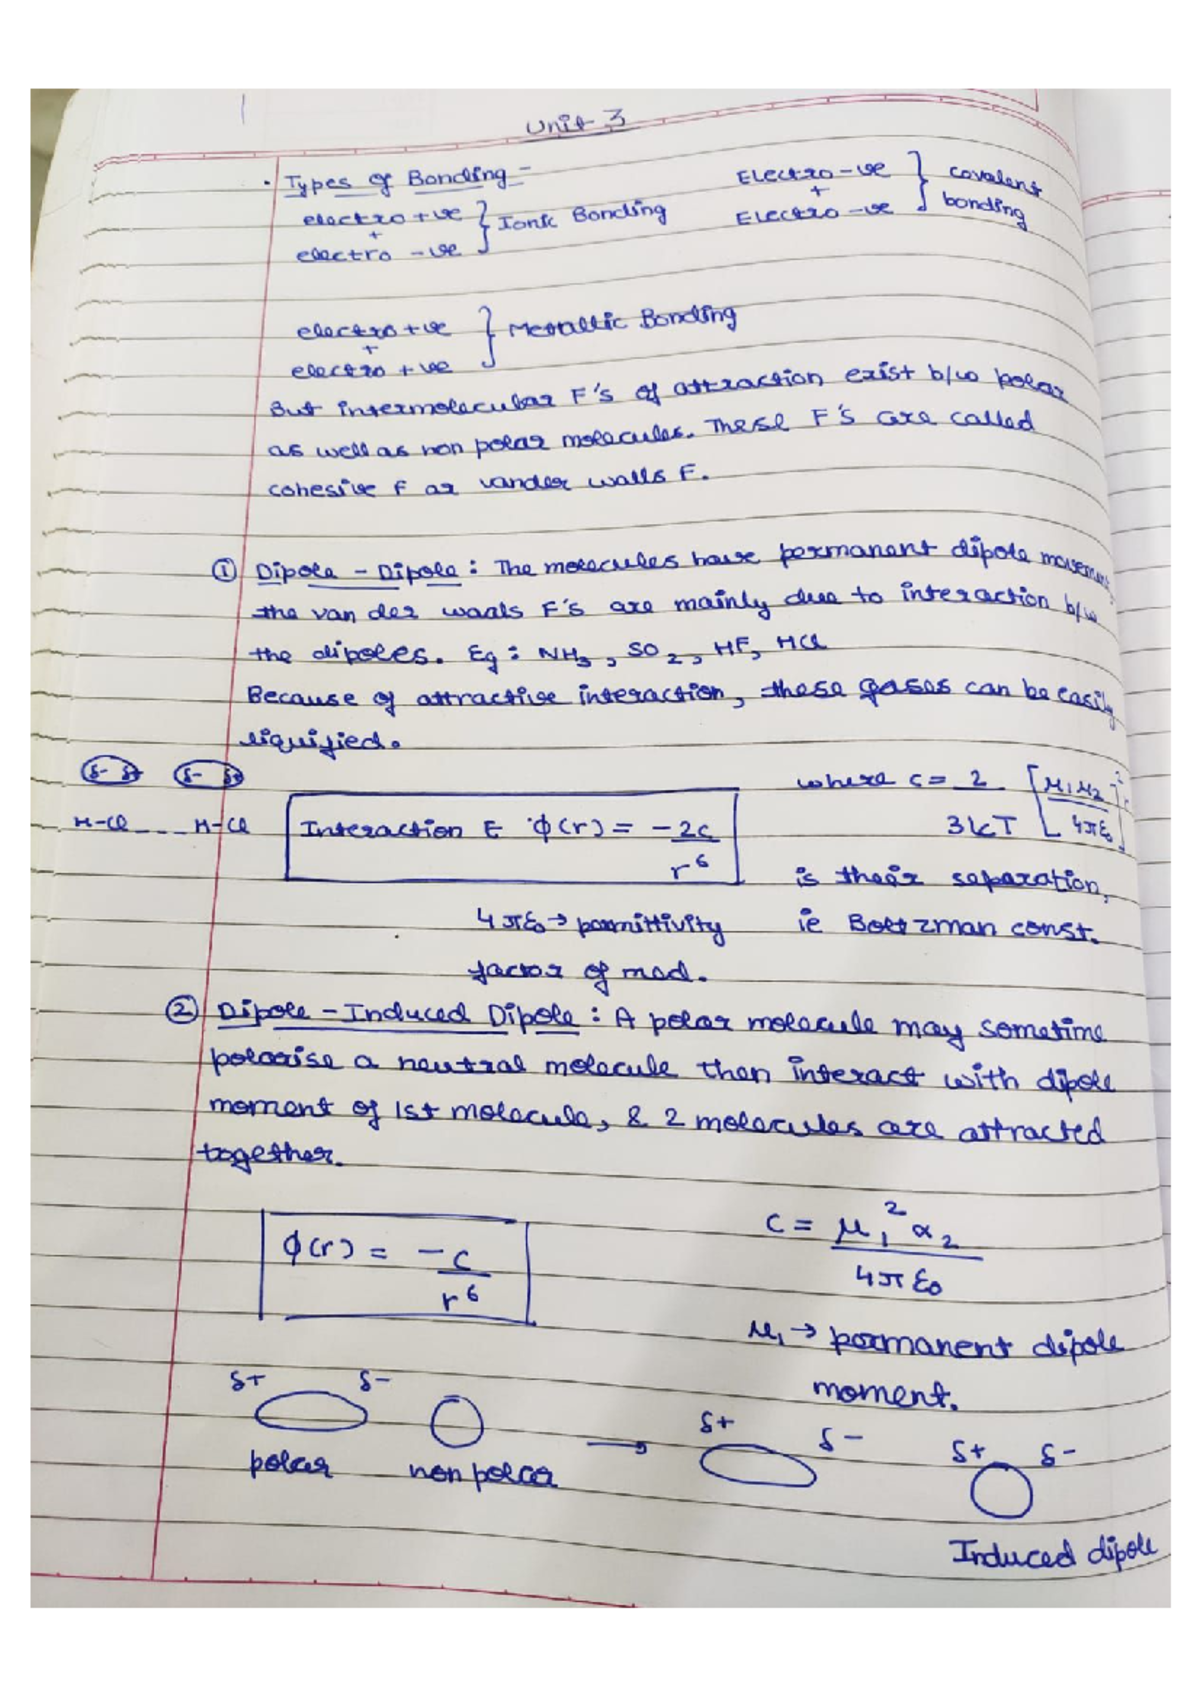 Unit 3
. Types of Bonding -
electro +ve
+
electro -ve } Ionic Bonding
Electro -ve
+
Electro -ve } covalent bonding
electro +ve
+
electro +ve } Metallic Bonding
But intermolecular F's of attraction exist b/w polar
as well as non polar molecules. These F's are called
cohesive F or vander walls F.
① Dipole - Dipole : The molecules have permanent dipole
the van der waals F's are mainly due to interaction b/w
the dipoles. Eg : NH3, SO2, HF, HCl
Because of attractive interaction, these gases can be easily
liquified.
δ- δ+ δ- δ+
H-Cl _ _ _ H-Cl
Interaction E ϕ(r) = -2c / r⁶
where c = 2 / 3kT [μ1μ2 / 4πε0]²
is their separation,
4πε0 → permittivity ie Boltzman const.
factor of med.
② Dipole - Induced Dipole : A polar molecule may sometime
polarise a neutral molecule then interact with dipole
moment of 1st molecule, & 2 molecules are attracted
together.
ϕ(r) = -c / r⁶
c = μ1² α2 / 4πε0
μ1 → permanent dipole
moment.
δ+ δ-
polar non polar
→
δ+ δ- δ+ δ-
Induced dipole